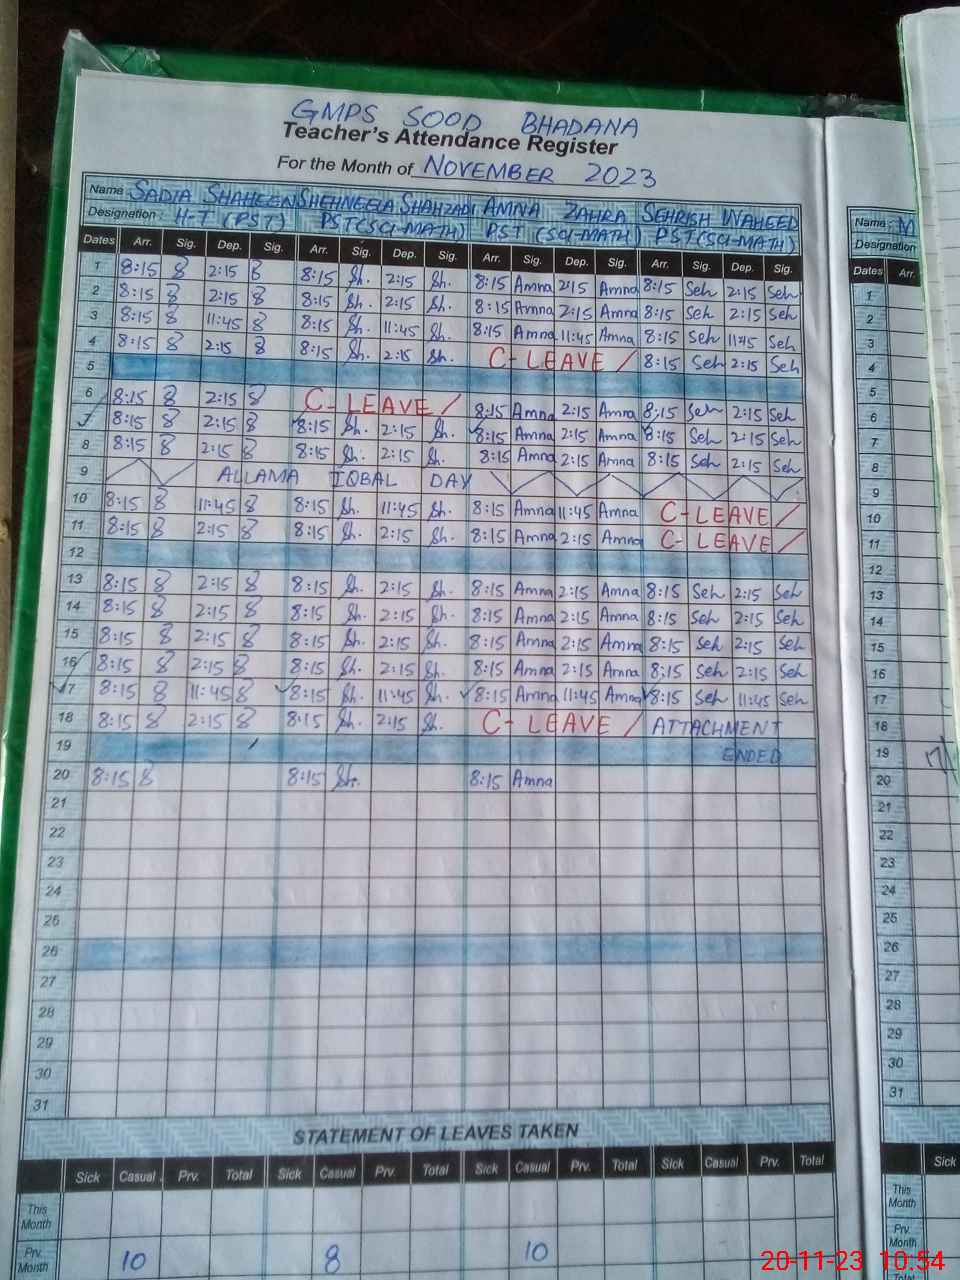 GMPS SOOD BHADANA
Teacher's Attendance Register
For the Month of NOVEMBER 2023
Name SADIA SHAHEEN SHEHNEELA SHAHZADI AMNA ZAHRA SEHRISH WAHEED
Designation: H-T (PST) PST(SCI-MATH) PST (SCI-MATH) PST(SCI-MATH)
Dates Arr. Sig. Dep. Sig. Arr. Sig. Dep. Sig. Arr. Sig. Dep. Sig. Arr. Sig. Dep. Sig.
1 8:15 8 2:15 8 8:15 Sh. 2:15 Sh. 8:15 Amna 2:15 Amna 8:15 Seh 2:15 Seh
2 8:15 8 2:15 8 8:15 Sh. 2:15 Sh. 8:15 Amna 2:15 Amna 8:15 Seh 2:15 Seh
3 8:15 8 11:45 8 8:15 Sh. 11:45 Sh. 8:15 Amna 11:45 Amna 8:15 Seh 11:45 Seh
4 8:15 8 2:15 8 8:15 Sh. 2:15 Sh. C-LEAVE / 8:15 Seh 2:15 Seh
5
6 8:15 8 2:15 8 C-LEAVE / 8:15 Amna 2:15 Amna 8:15 Seh 2:15 Seh
7 8:15 8 2:15 8 8:15 Sh. 2:15 Sh. 8:15 Amna 2:15 Amna 8:15 Seh 2:15 Seh
8 8:15 8 2:15 8 8:15 Sh. 2:15 Sh. 8:15 Amna 2:15 Amna 8:15 Seh 2:15 Seh
9 ALLAMA IQBAL DAY
10 8:15 8 11:45 8 8:15 Sh. 11:45 Sh. 8:15 Amna 11:45 Amna C-LEAVE /
11 8:15 8 2:15 8 8:15 Sh. 2:15 Sh. 8:15 Amna 2:15 Amna C-LEAVE /
12
13 8:15 8 2:15 8 8:15 Sh. 2:15 Sh. 8:15 Amna 2:15 Amna 8:15 Seh 2:15 Seh
14 8:15 8 2:15 8 8:15 Sh. 2:15 Sh. 8:15 Amna 2:15 Amna 8:15 Seh 2:15 Seh
15 8:15 8 2:15 8 8:15 Sh. 2:15 Sh. 8:15 Amna 2:15 Amna 8:15 Seh 2:15 Seh
16 8:15 8 2:15 8 8:15 Sh. 2:15 Sh. 8:15 Amna 2:15 Amna 8:15 Seh 2:15 Seh
17 8:15 8 11:45 8 8:15 Sh. 11:45 Sh. 8:15 Amna 11:45 Amna 8:15 Seh 11:45 Seh
18 8:15 8 2:15 8 8:15 Sh. 2:15 Sh. C-LEAVE / ATTACHMENT
19 ENDED
20 8:15 8 8:15 Sh. 8:15 Amna
21
22
23
24
25
26
27
28
29
30
31
STATEMENT OF LEAVES TAKEN
Sick Casual Prv. Total Sick Casual Prv. Total Sick Casual Prv. Total Sick Casual Prv. Total
This Month
Prv. Month 10 8 10
Name: M
Designation
Dates Arr.
1
2
3
4
5
6
7
8
9
10
11
12
13
14
15
16
17
18
19
20
21
22
23
24
25
26
27
28
29
30
31
Sick
This Month
Prv. Month
Total
20-11-23 10:54